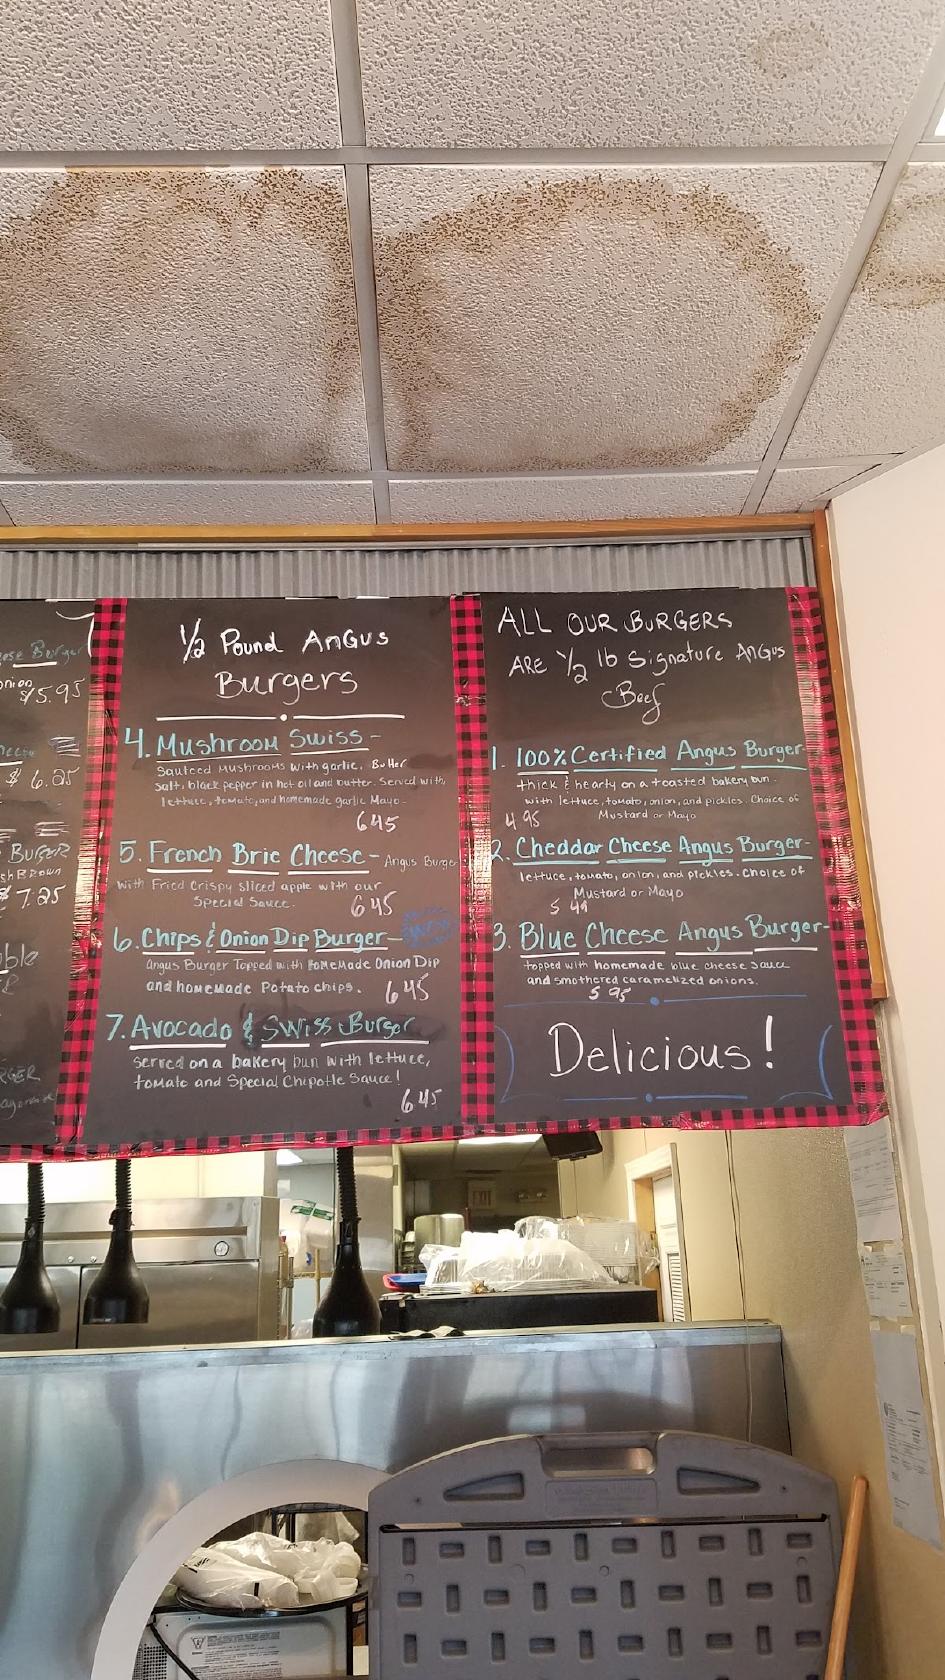 ese Burger
onion
$5.95
$6.25
BURGER
$7.25
ble
RGER
½ Pound Angus
Burgers
4. Mushroom Swiss -
Sauteed Mushrooms with garlic, Butter
Salt, black pepper in hot oil and butter. Served with
lettuce, tomato, and homemade garlic Mayo-
6 45
5. French Brie Cheese - Angus Burger
with Fried Crispy sliced apple with our
Special Sauce.
6 45
6. Chips & Onion Dip Burger -
Angus Burger Topped with HomeMade Onion Dip
and homemade Potato chips.
6 45
7. Avocado & Swiss Burger
served on a bakery bun with lettuce,
tomato and Special Chipotle Sauce!
6 45
ALL OUR BURGERS
ARE ½ lb Signature Angus
Beef
1. 100% Certified Angus Burger-
thick & hearty on a toasted bakery bun.
with lettuce, tomato, onion, and pickles. Choice of
Mustard or Mayo
4 95
2. Cheddar Cheese Angus Burger-
lettuce, tomato, onion, and pickles. Choice of
Mustard or Mayo
5 49
3. Blue Cheese Angus Burger-
topped with homemade blue cheese sauce
and smothered caramelized onions.
5 95
Delicious!
EXIT